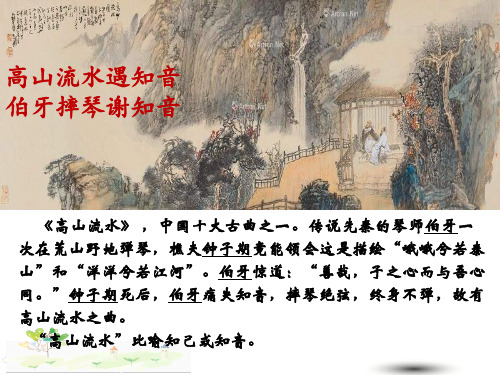 高山流水遇知音
伯牙摔琴谢知音
Artron.Net
Artron.Net
Artron.Net
《高山流水》，中国十大古曲之一。传说先秦的琴师伯牙一
次在荒山野地弹琴，樵夫钟子期竟能领会这是描绘“峨峨兮若泰
山”和“洋洋兮若江河”。伯牙惊道：“善哉，子之心而与吾心
同。”钟子期死后，伯牙痛失知音，摔琴绝弦，终身不弹，故有
高山流水之曲。
“高山流水”比喻知己或知音。